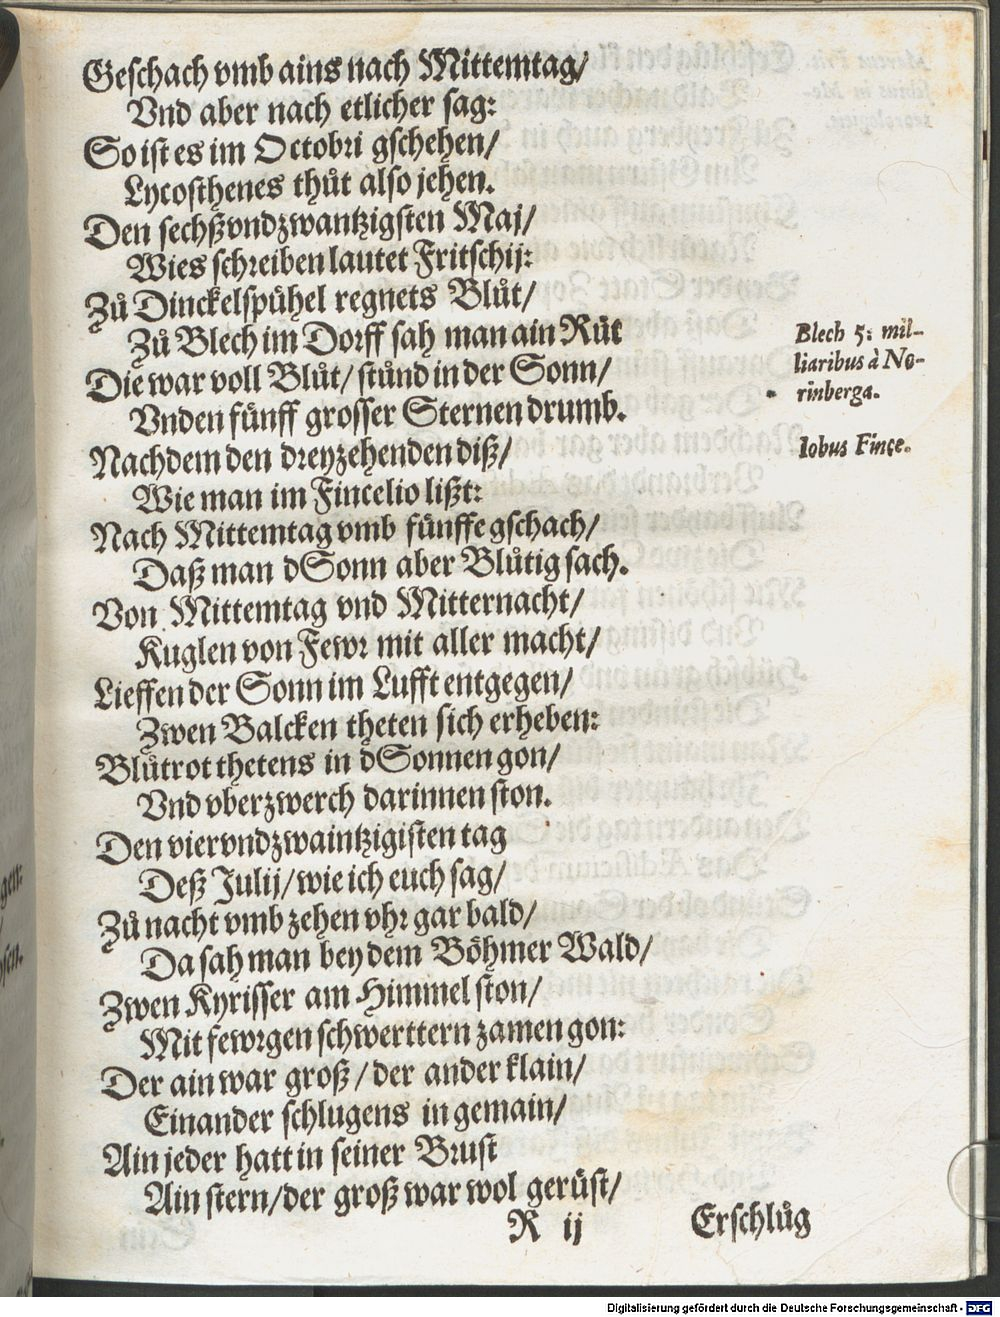 Geschach vmb ains nach Mittemtag/
Vnd aber nach etlicher sag:
So ist es im Octobri gschehen/
Lycosthenes thůt also jehen.
Den sechßvndzwantzigsten Maj/
Wies schreiben lautet Fritschij:
Zů Dinckelspühel regnets Blůt/
Zů Blech im Dorff sah man ain Růt
Blech 5: mil-
liaribus à No-
rinberga.
Die war voll Blůt/ stůnd in der Sonn/
Vnden fünff grosser Sternen drumb.
Nachdem den dreyzehenden diß/
Iobus Finçe.
Wie man im Fincelio lißt:
Nach Mittemtag vmb fünffe gschach/
Daß man dSonn aber Blůtig sach.
Von Mittemtag vnd Mitternacht/
Kuglen von Fewr mit aller macht/
Lieffen der Sonn im Lufft entgegen/
Zwen Balcken theten sich erheben:
Blůtrot thetens in dSonnen gon/
Vnd vberzwerch darinnen ston.
Den viervndzwaintzigisten tag
Deß Julij/ wie ich euch sag/
Zů nacht vmb zehen vhr gar bald/
Da sah man bey dem Böhmer Wald/
Zwen Kyrisser am Himmel ston/
Mit fewrgen schwerttern zamen gon:
Der ain war groß/ der ander klain/
Einander schlugens in gemain/
Ain jeder hatt in seiner Brust
Ain stern/ der groß war wol gerüst/
R ij
Erschlůg
gen:
/
sen.
Digitalisierung gefördert durch die Deutsche Forschungsgemeinschaft - DFG